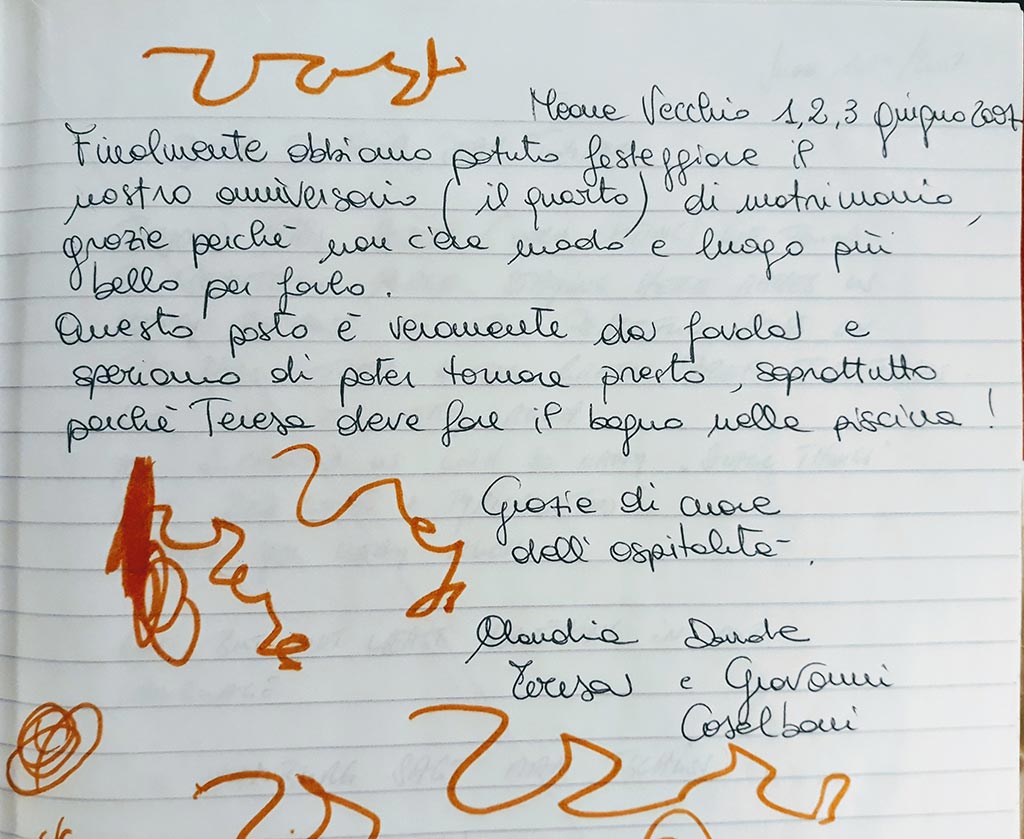 Meone Vecchio 1,2,3 giugno 2007
Finalmente abbiamo potuto festeggiare il
nostro anniversario (il quarto) di matrimonio,
grazie perchè non c'era modo e luogo più
bello per farlo.
Questo posto è veramente da favola e
speriamo di poter tornare presto, soprattutto
perchè Teresa deve fare il bagno nella piscina!
Grazie di cuore
dell'ospitalità.
Claudia Davide
Teresa e Giovanni
Casalboni